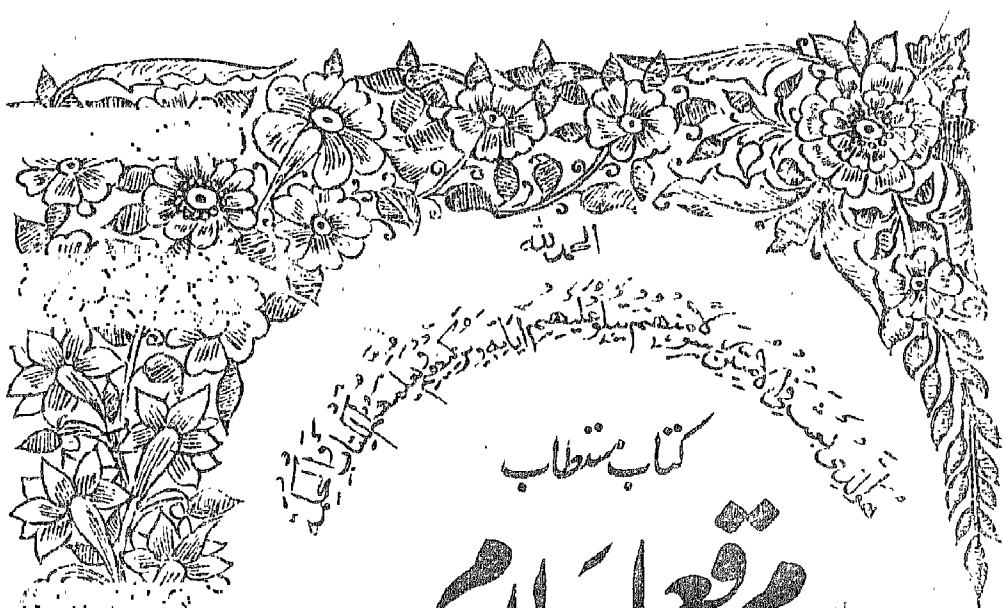 الحمدلله
هو الذي بعث في الاميين رسولا منهم يتلو عليهم اياته ويزكيهم ويعلمهم الكتاب والحكمة
کتاب مستطاب
مرقع اسلام